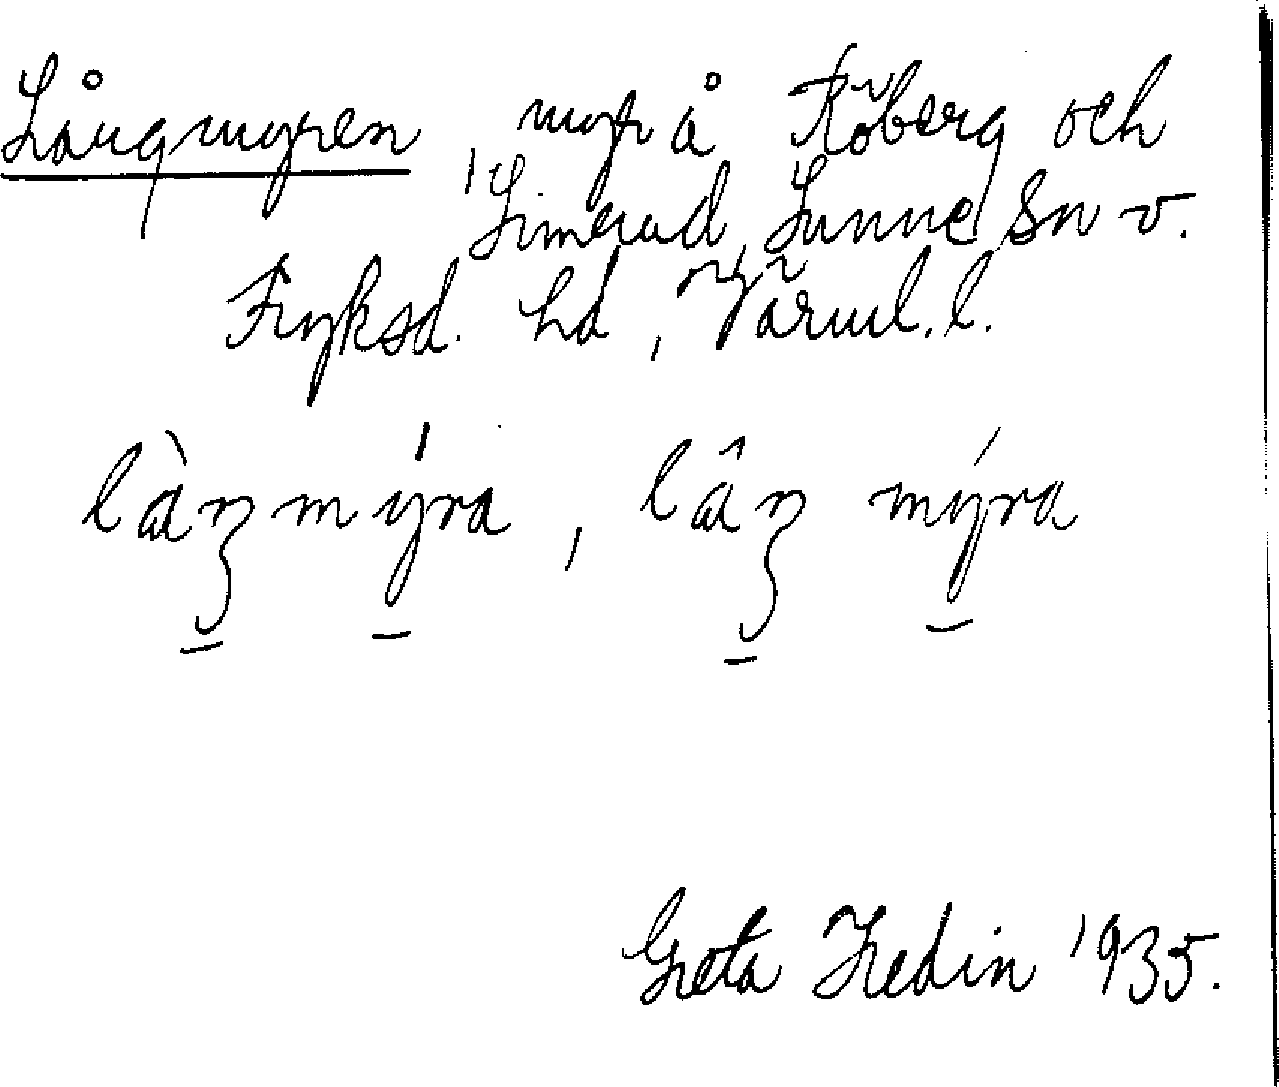 Långmyren, myr å Röberg och
Limerud, Sunne sn v.
Fryksd. hd, Värml. l.
làŋmýra, lâŋ mýra
Greta Hedin 1935.